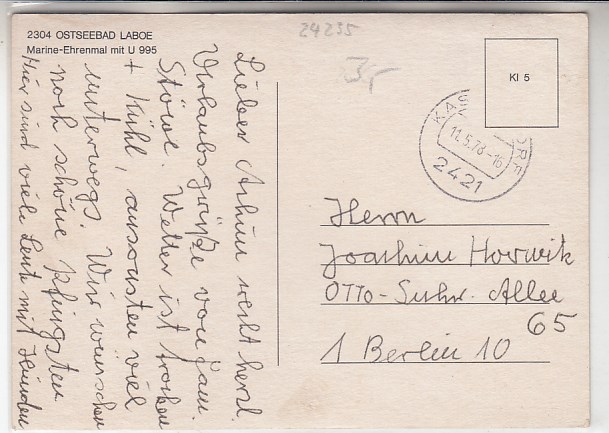 2304 OSTSEEBAD LABOE
Marine-Ehrenmal mit U 995
24235
3,-
Kl 5
11.5.78-16
2421
Lieber Achim nebst herzl.
Urlaubsgrüße von Fam.
Stöwe. Wetter ist trocken
+ kühl, ansonsten viel
unterwegs. Wir wünschen
noch schöne Pfingsten
Hier sind viele Leute mit Hunden
Herrn
Joachim Horwik
Otto-Suhr-Allee
65
1 Berlin 10